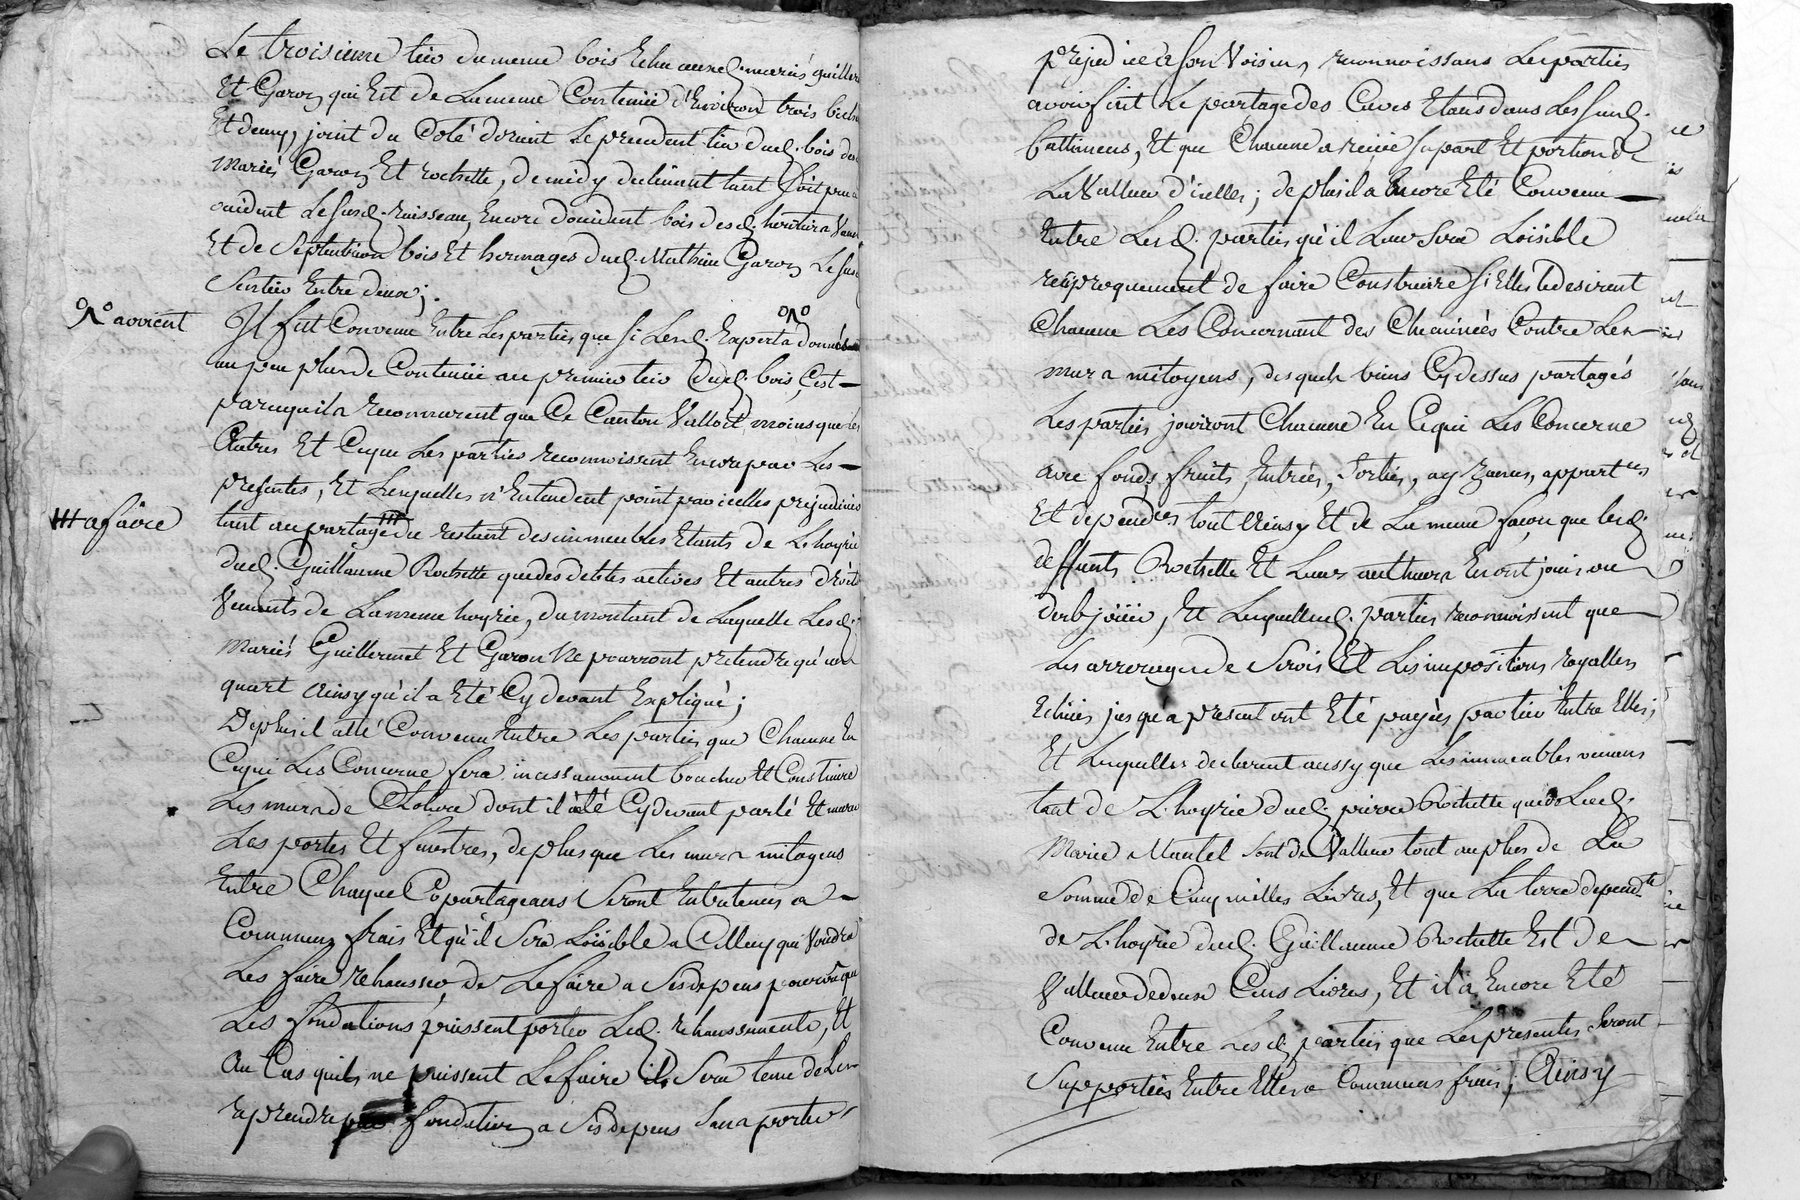 Le troisieme tier du meme bois Echu auxd. mariés guiller
Et Garon qui Est de La meme Contenüe d'Environ trois bich
Et demy, joint du Coté dorient Le precedent tier dud. bois des
Mariés Garon Et rochette, de midy
occident Le susd. Ruisseau, Encore doccident bois desd. heritiers
Et de Septentrion bois Et hermages dud. Mathieu Garon Le sus
Sentier Entre deux;
avoient
Il fut Convenu Entre Les parties que si Lesd. Experts donné
un peu plus de Contenüe au premier tier dud. bois, C'est
parcequ'ils reconnurent que Ce Canton Valloit moins que les
Autres Et Ceque Les parties reconnoissent Encore par Les
presentes, Et Lesquelles n'Entendent point par icelles prejudicier
a faire
tant au partage du restant des immeubles Etants de L'hoyrie
dud. Guillaume Rochette que des debtes actives Et autres droits
Venants de La meme hoyrie, du montant de Laquelle Lesd.
Mariés Guillermet Et Garon Ne pourront pretendre qu'un
quart Ainsy qu'il a Eté Cy devant Expliqué;
De plus il a été Convenu Entre Les parties que Chacune En
Cequi Les Concerne fera incessamment boucher Et Construire
Les murs de Cloture dont il a été Cy devant parlé Et murer
Les portes Et fenestres, de plus que Les murs mitoyens
Entre Chaque Copartageans Seront Entretenus a
Communs frais Et qu'il Sera Loisible a Celluy qui Voudra
Les faire rehausser de Le faire a Ses depens pourvu que
Les fondations puissent porter Led. rehaussements, Et
Au Cas qu'ils ne puissent Le faire il Sera tenu de Les
reprendre par fondation a Ses depens Sans porter
prejudice a Son Voisin, reconnoissans Les parties
avoir fait Le partage des Caves Etans dans Les susd.
battimens, Et que Chacune a reçüe Sa part Et portion de
La Valleur d'icelles; de plus il a Encore Eté Convenu
Entre Lesd. parties qu'il Leur Sera Loisible
reciproquement de faire Construire Si Elles Le desirent
Chacune Les Concernant des Cheminées Contre Les
murs mitoyens, desquels biens Cy dessus partagés
Les parties jouiront Chacune En Cequi Les Concerne
avec fonds, fruits, Entrées, Sorties, ayzances, appart.ces
Et depend.ces tout Ainsy Et de La meme façon que lesd.
deffunts Rochette Et Leurs autheurs En ont joui ou
deub joüir, Et Lesquelles d. parties reconnoissent que
Les arrerages de Servis Et Les impositions royalles
Echües jusqu'a present ont Eté payées par tier Entre Elles;
Et Lesquelles declarent aussy que Les immeubles venans
tant de L'hoyrie dud. pierre Rochette que de Lad.
Marie Mantel Sont de Valleur tout au plus de La
Somme de Cinq milles Livres, Et que La terre depend.te
de L'hoyrie dud. Guillaume Rochette Est de
Valleur de deux Cens Livres, Et il a Encore Eté
Convenu Entre Lesd. parties que Les presentes Seront
Supportées Entre Elles a Communs frais; Ainsy